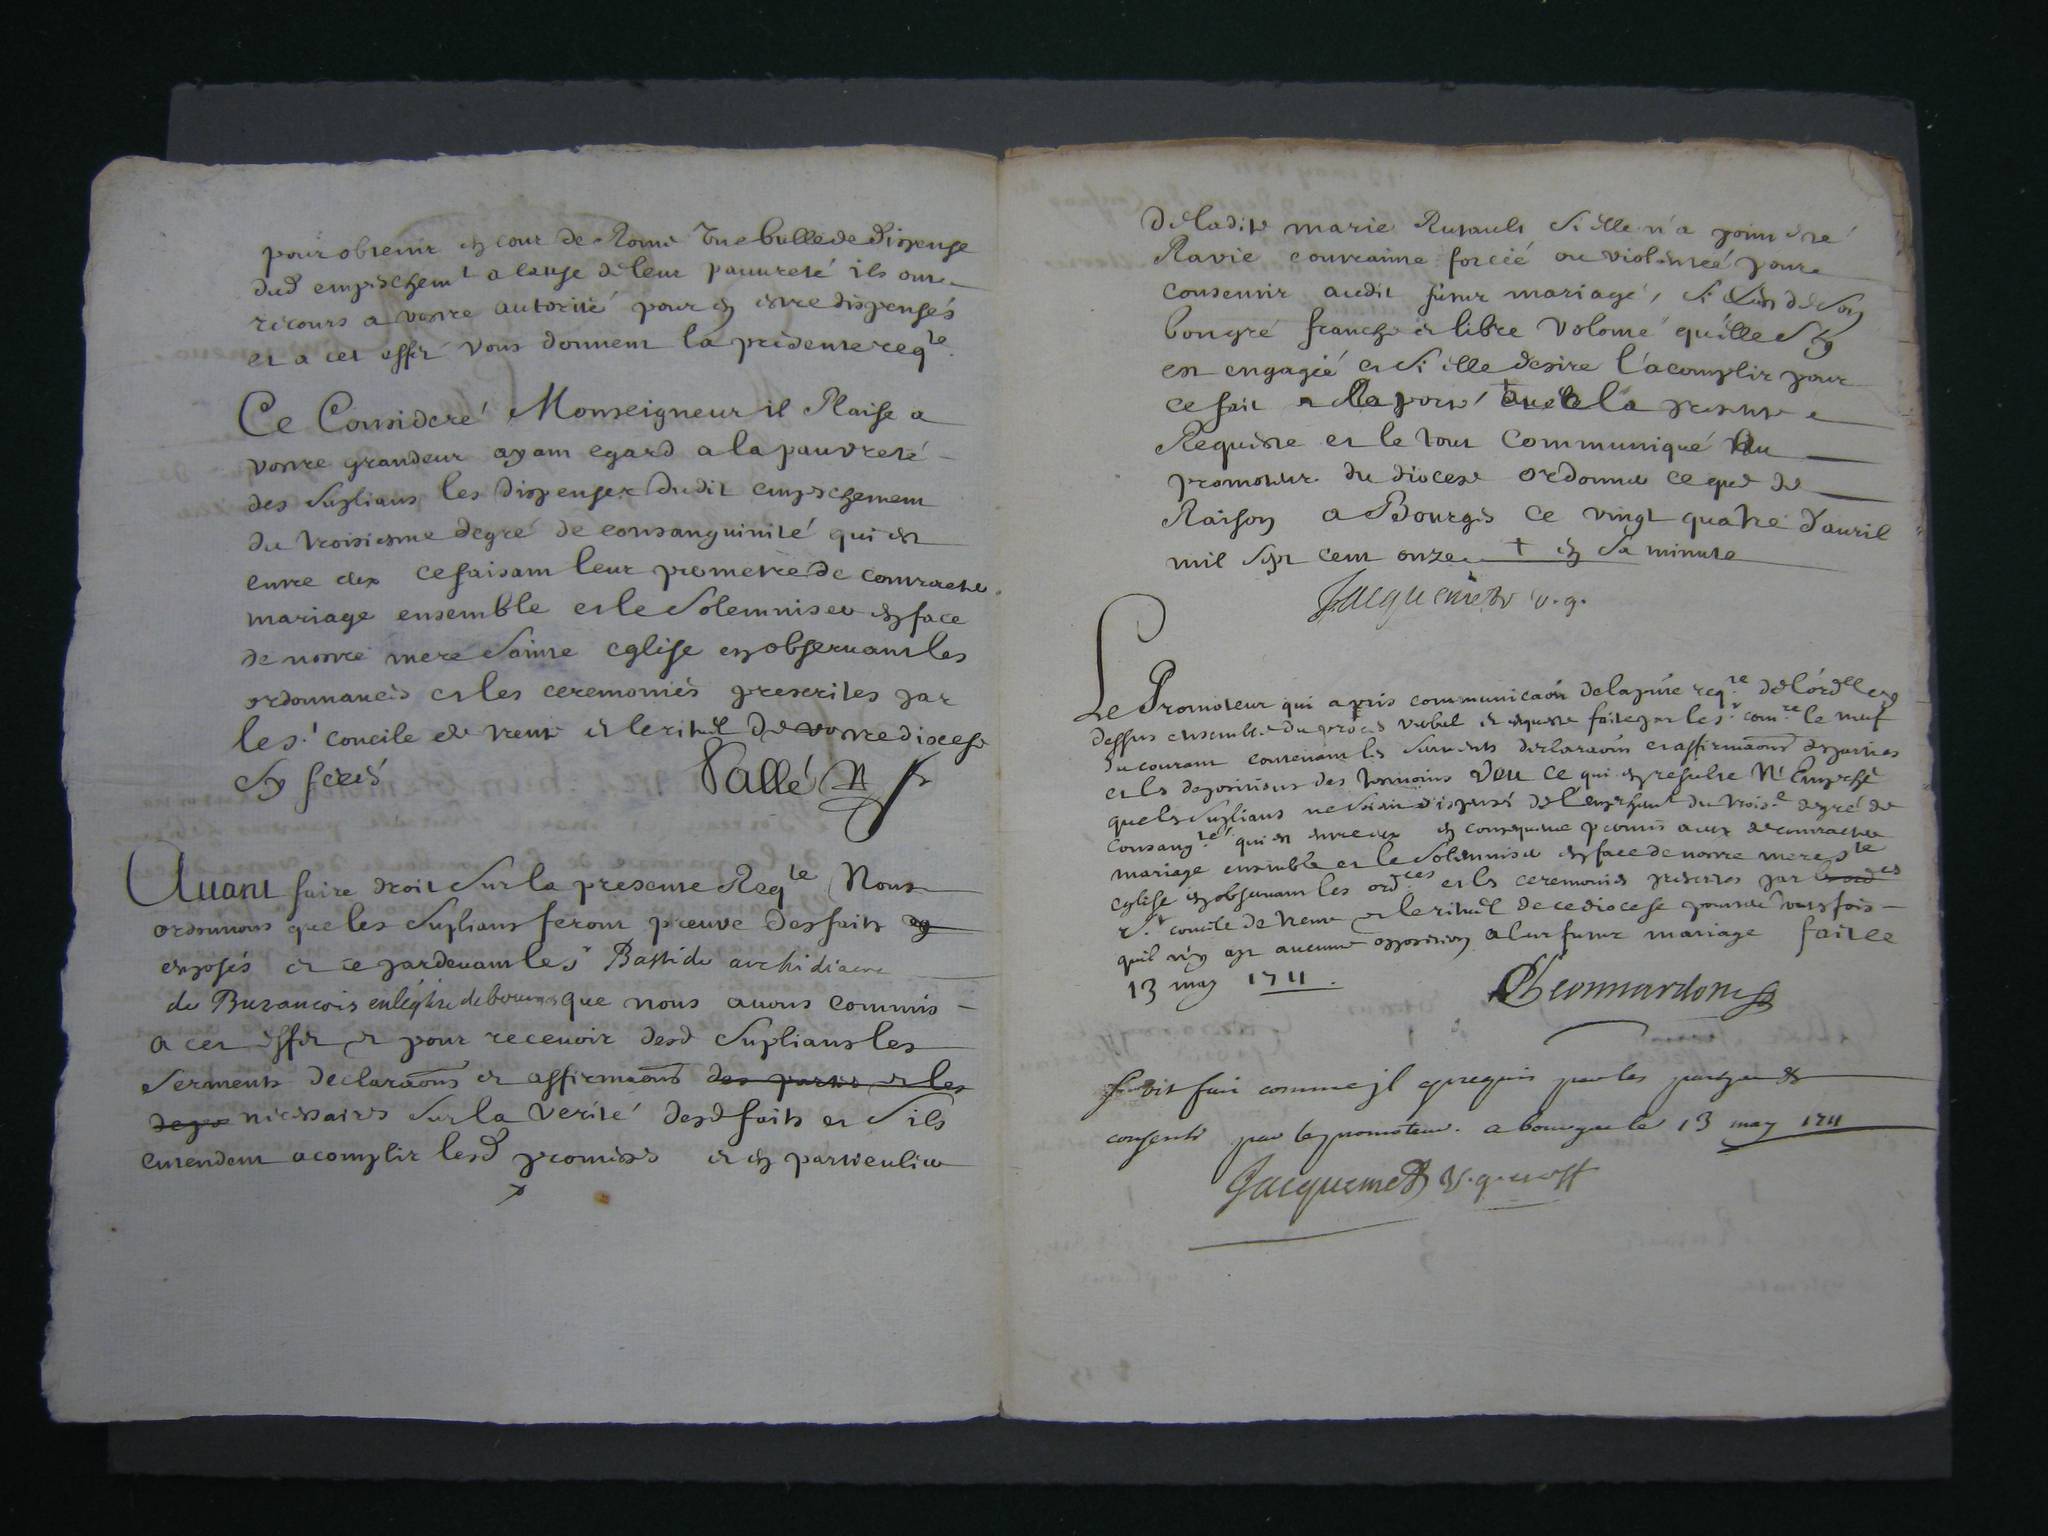 pour obtenir en cour de Rome une bulle de dispense
dud empeschemt a cause de leur pauvreté ils ont
recours a vostre autorité pour en estre dispensés
et a cet effet vous donnent la presente reqte.
Ce Consideré Monseigneur il Plaise a
vostre grandeur ayant egard a la pauvreté
des suplians les dispenser dudit empeschement
du troisiesme degré de consanguinité qui est
entre eux ce faisant leur permetre de contracter
mariage ensemble et le solemniser en face
de nostre mere sainte eglise en observant les
ordonnances et les ceremonies prescrites par
le st concile de trente et le rituel de vostre diocese
Vallé
Avant faire droit sur la presente Reqte Nous
ordonnons que les suplians feront preuve des faits
exposés et ce pardevant le sr Bastide archidiacre
de Buzancois en léglise de bourges que nous avons commis
a cet effet et pour recevoir desd suplians les
serments declaraons et affirmaons des parties et les
necessaires sur la verité desd faits et s'ils
entendent acomplir lesd promesses et en particulier
de ladite marie Rusault si elle n'a point esté
Ravie contrainte forcée ou violentée pour
consentir audit futur mariage, si c'est de son
bon gré franche et libre volonté qu'elle s'y
est engagée et si elle desire l'acomplir pour
ce fait et raporté avec la presente
Requeste et le tout communiqué au
promoteur du diocese ordonner ce que de
Raison a Bourges ce vingt quatre d'avril
mil sept cent onze + en la minute
Jacquemet v.g.
Le Promoteur qui a pris communicaon de la pnte reqte de l'ordce cy
dessus ensemble du procés verbal et enqueste faite par le sr comre le neuf
du courant contenant les serments declaraons et affirmaons des parties
et les depositions des tesmoins Veu ce qui en resulte N'Empesche
que les suplians ne soient dispensés de l'empeschemt du trois.e degré de
consangté qui est entre eux en consequence permis a eux de contracter
mariage ensemble et le solemniser en face de nostre mere ste
eglise en observant les ordces et les ceremonies prescrites par
st concile de trente et le rituel de ce diocese pourveu toutesfois
quil n'y ayt aucune opposition a leur futur mariage fait ce
13 may 1711.
Soit fait comme il est requis par les parties et
consenti par le promoteur. a bourges le 13 may 1711
Jacquemet v.g. et off